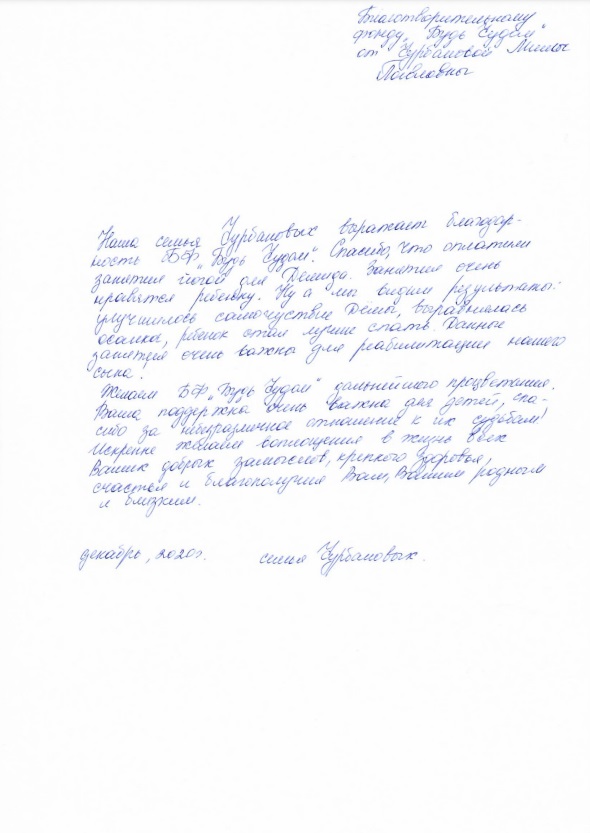 Благотворительному
фонду „Будь Чудом"
от Чурбановой
Павловны
Наша семья Чурбановых выражает благодар-
ность БФ „Будь Чудом". Спасибо, что оплатили
занятия йогой для Демида. Занятия очень
нравятся ребёнку. Ну а мы видим результаты:
улучшилось самочувствие Дёмы, выравнялась
осанка, ребёнок стал лучше спать. Данные
занятия очень важны для реабилитации нашего
сына!
Желаем БФ „Будь Чудом" дальнейшего процветания.
Ваша поддержка очень важна для детей, спа-
сибо за небезразличное отношение к их судьбам!
Искренне желаем воплощения в жизнь всех
Ваших добрых замыслов, крепкого здоровья,
счастья и благополучия Вам, Вашим родным
и близким.
декабрь, 2020г. семья Чурбановых.